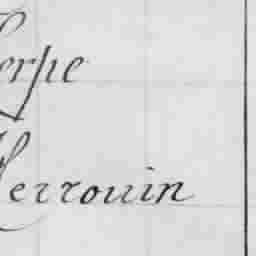 erpe
errouin